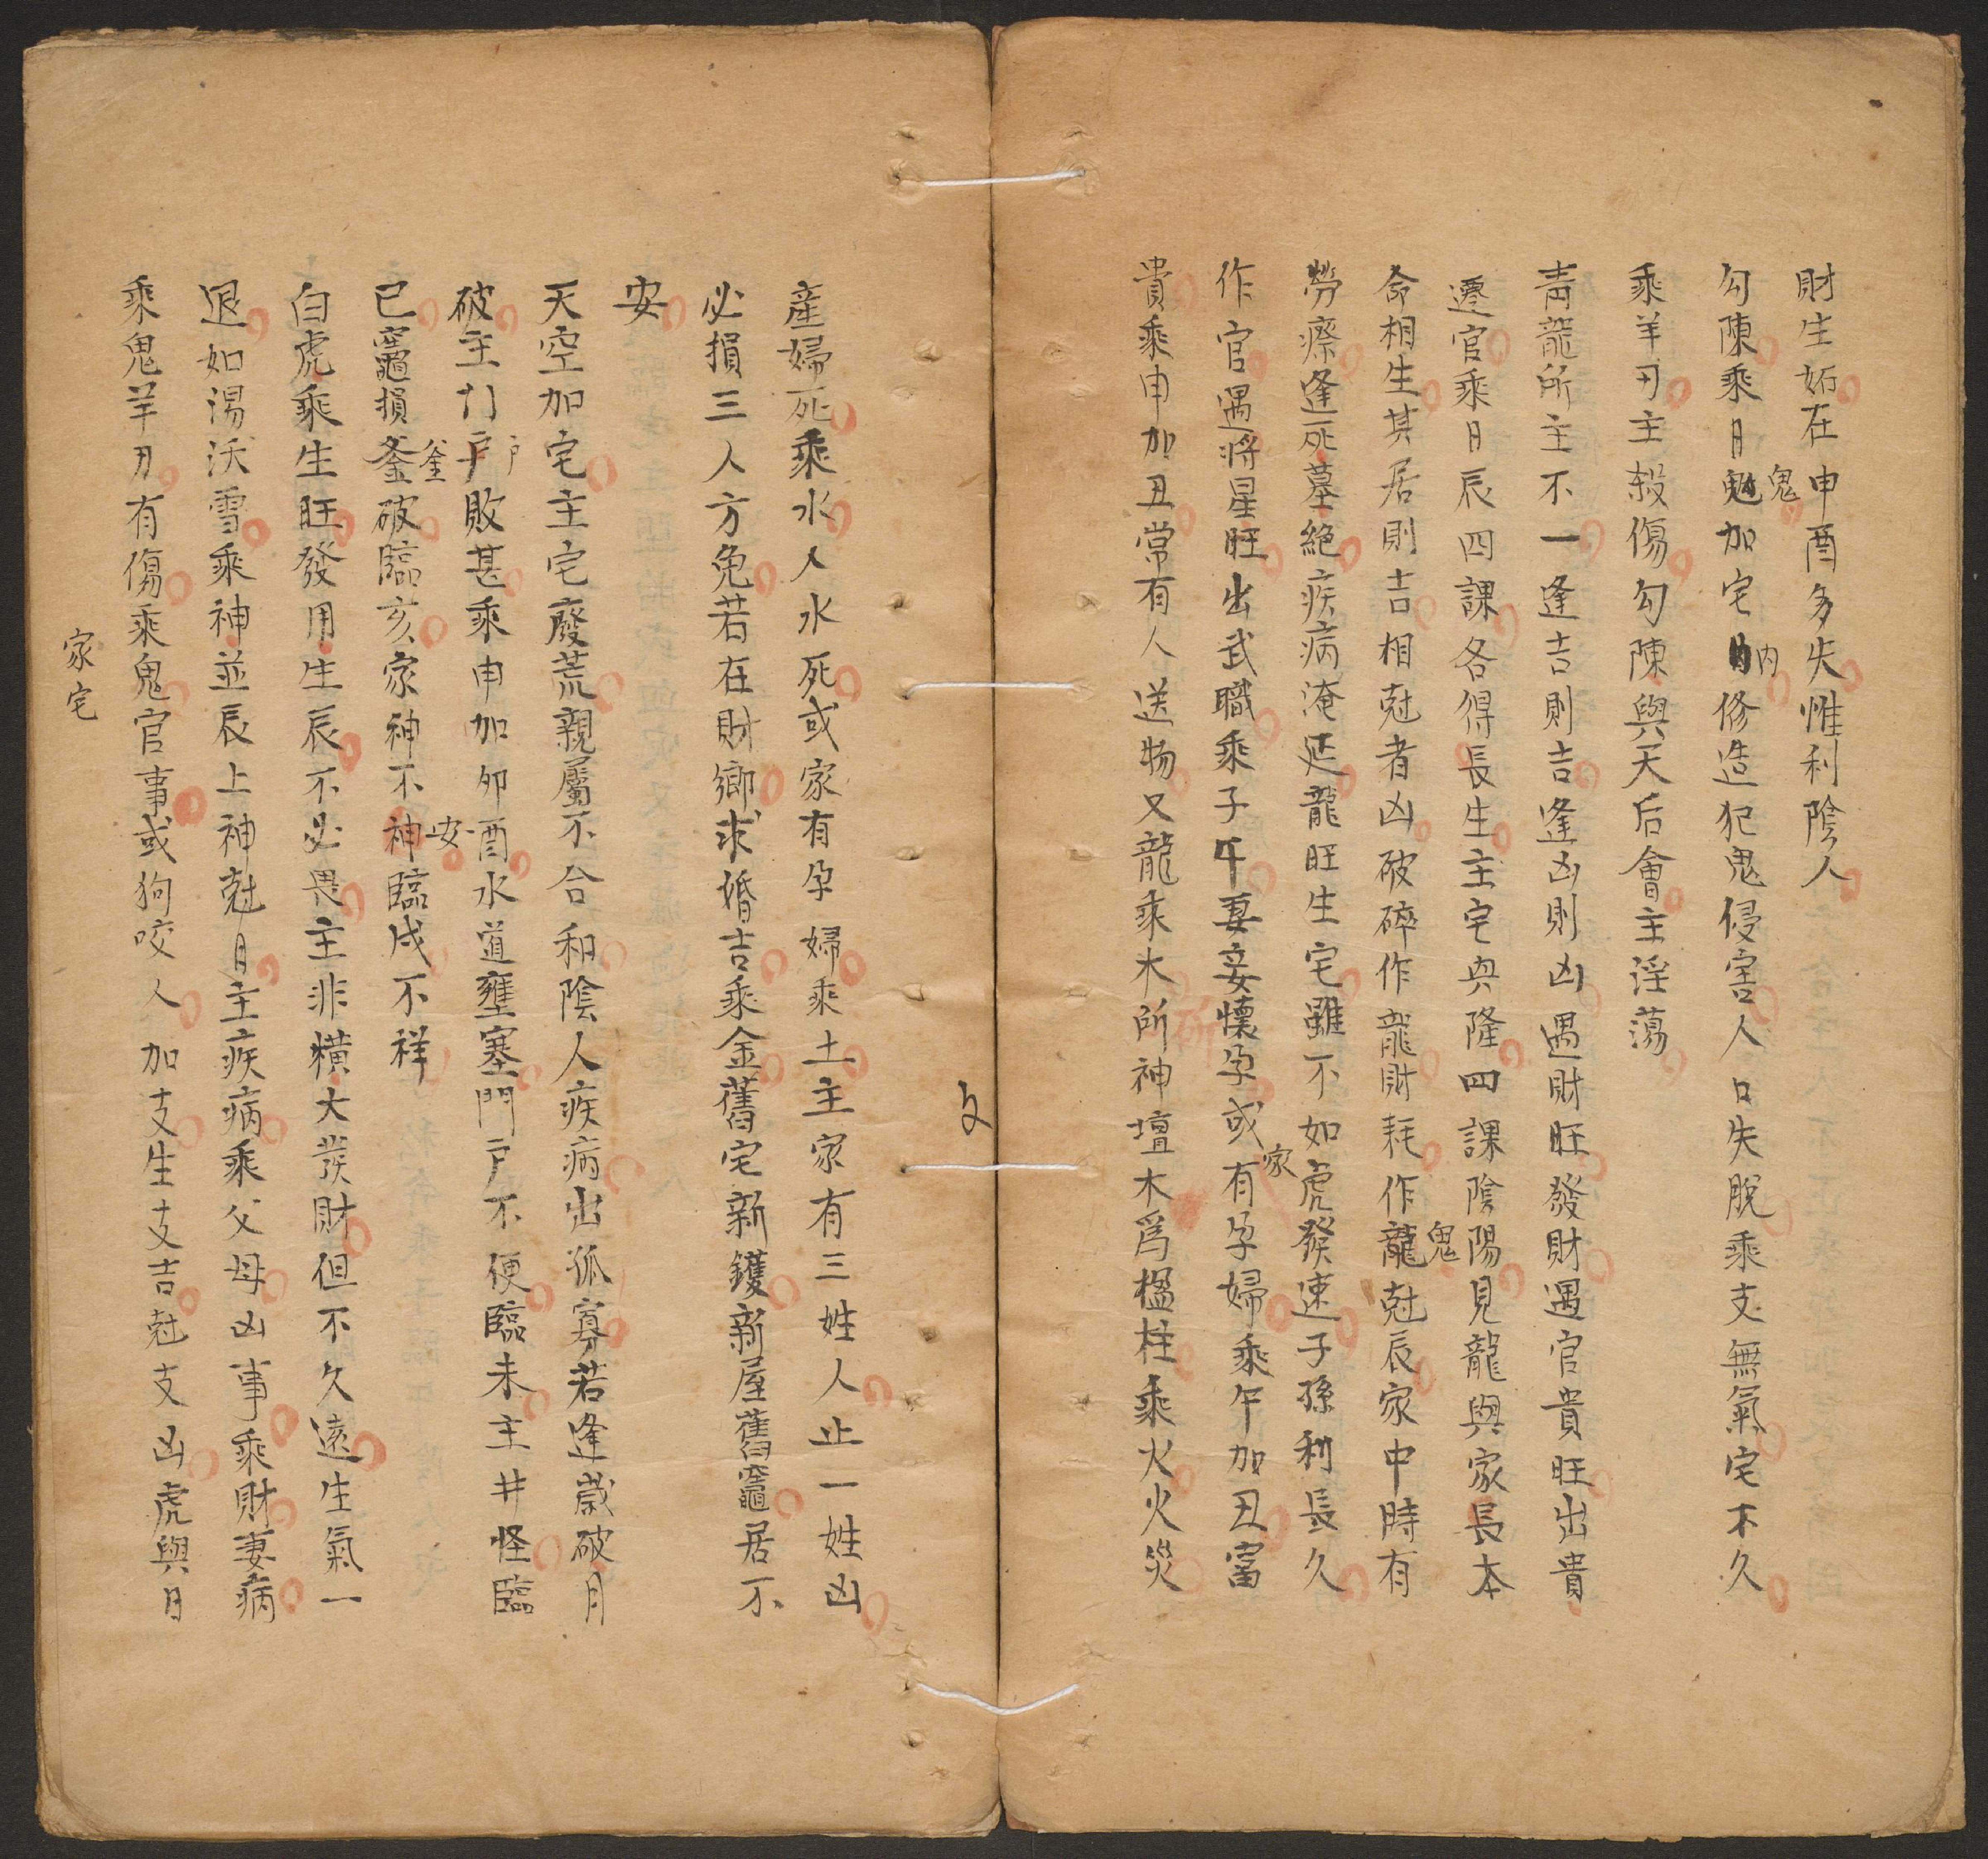 財生妬在申酉多失惟利陰人
勾陳乘日鬼加宅内修造犯鬼侵害人口失脫乘支無氣宅不久
乘羊刃主殺傷勾陳與天后會主淫蕩
青龍所主不一逢吉則吉逢凶則凶遇財旺發財遇官貴旺出貴
遷官乘日辰四課各得長生主宅興隆四課陰陽見龍與家長本
命相生其居則吉相尅者凶破碎作龍財耗作龍鬼尅辰家中時有
勞瘵逢死墓絕疾病淹延龍旺生宅雖不如虎發速子孫利長久
作官遇將星旺出武職乘子午妻妾懷孕或家有孕婦乘午加丑富
貴乘申加丑常有人送物又龍乘木所神壇木為楹柱乘火火災
產婦死乘水人水死或家有孕婦乘土主家有三姓人止一姓凶
必損三人方免若在財鄉求婚吉乘金舊宅新鑊新屋舊竈居不
安
天空加宅主宅廢荒親屬不合和陰人疾病出孤寡若逢歲破月
破主门户敗甚乘申加卯酉水道壅塞門户不便臨未主井怪臨
巳竈損釜破臨亥家神不安臨戌不祥
白虎乘生旺發用生辰不必畏主非横大發財但不久遠生氣一
退如湯沃雪乘神並辰上神尅日主疾病乘父母凶事乘財妻病
乘鬼羊刃有傷乘鬼官事或狗咬人加支生支吉尅支凶虎與日
家宅